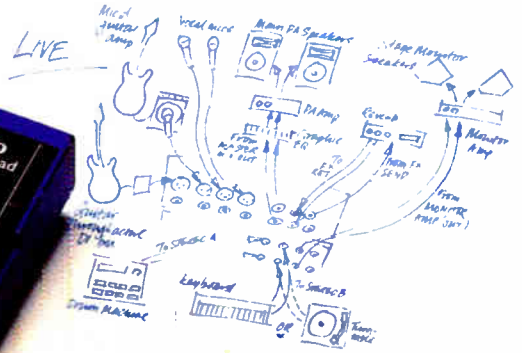 LIVE
Mic'd
guitar
amp
Vocal mics
Main PA Speakers
Stage Monitor
Speakers
PA Amp
Graphic
EQ
Monitor
Amp
From
MASTER
To
FX
RET
FROM FX
SEND
FROM
MONITOR
Guitar
through active
DI box
To STEREO A
Drum Machine
Keyboard
OR
To STEREO B
Turn-
table
ad